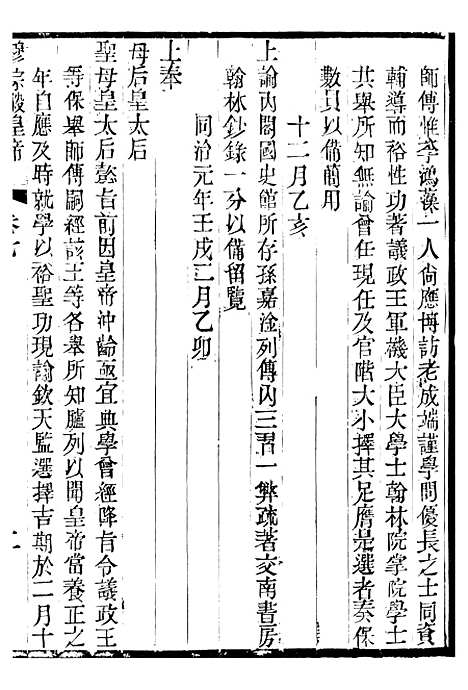 師傅惟李鴻藻一人尙應博訪老成端謹學問優長之士同資
輔導而裕性功著議政王軍機大臣大學士翰林院掌院學士
共舉所知無論曾任現任及官階大小擇其足膺是選者奏保
數員以備簡用
十二月乙亥
上諭內閣國史館所存孫嘉淦列傳內三習一弊疏著交南書房
翰林鈔錄一分以備留覽
同治元年壬戌二月乙卯
上奉
母后皇太后
聖母皇太后懿旨前因皇帝沖齡亟宜典學曾經降旨令議政王
等保舉師傅嗣經該王等各舉所知臚列以聞皇帝當養正之
年自應及時就學以裕聖功現諭欽天監選擇吉期於二月十
穆宗毅皇帝 卷七 二